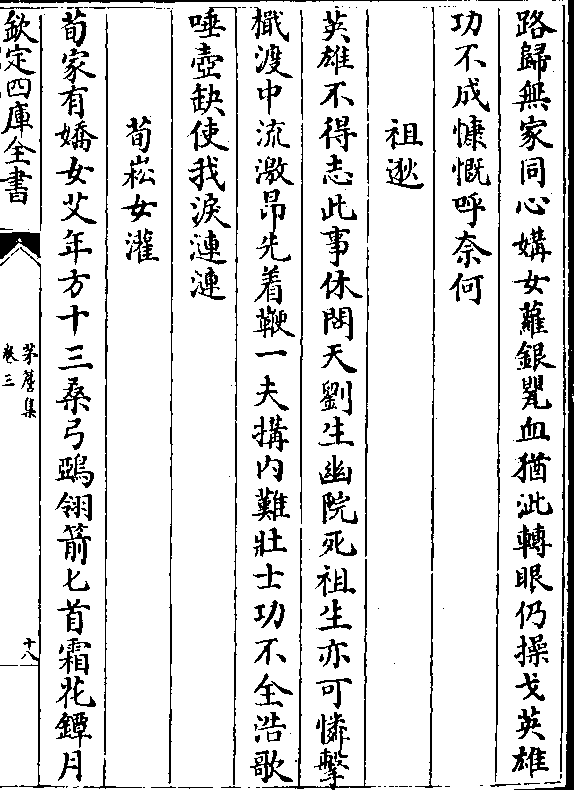 路歸無家同心媾女蘿銀甖血猶泚轉眼仍操戈英雄
功不成慷慨呼奈何
祖逖
英雄不得志此事休問天劉生幽院死祖生亦可憐擊
檝渡中流激昂先着鞭一夫搆内難壯士功不全浩歌
唾壺缺使我淚漣漣
荀崧女灌
荀家有嬌女艾年方十三桑弓鵶翎箭匕首霜花鐔月
欽定四庫全書
茅簷集
卷三
十八